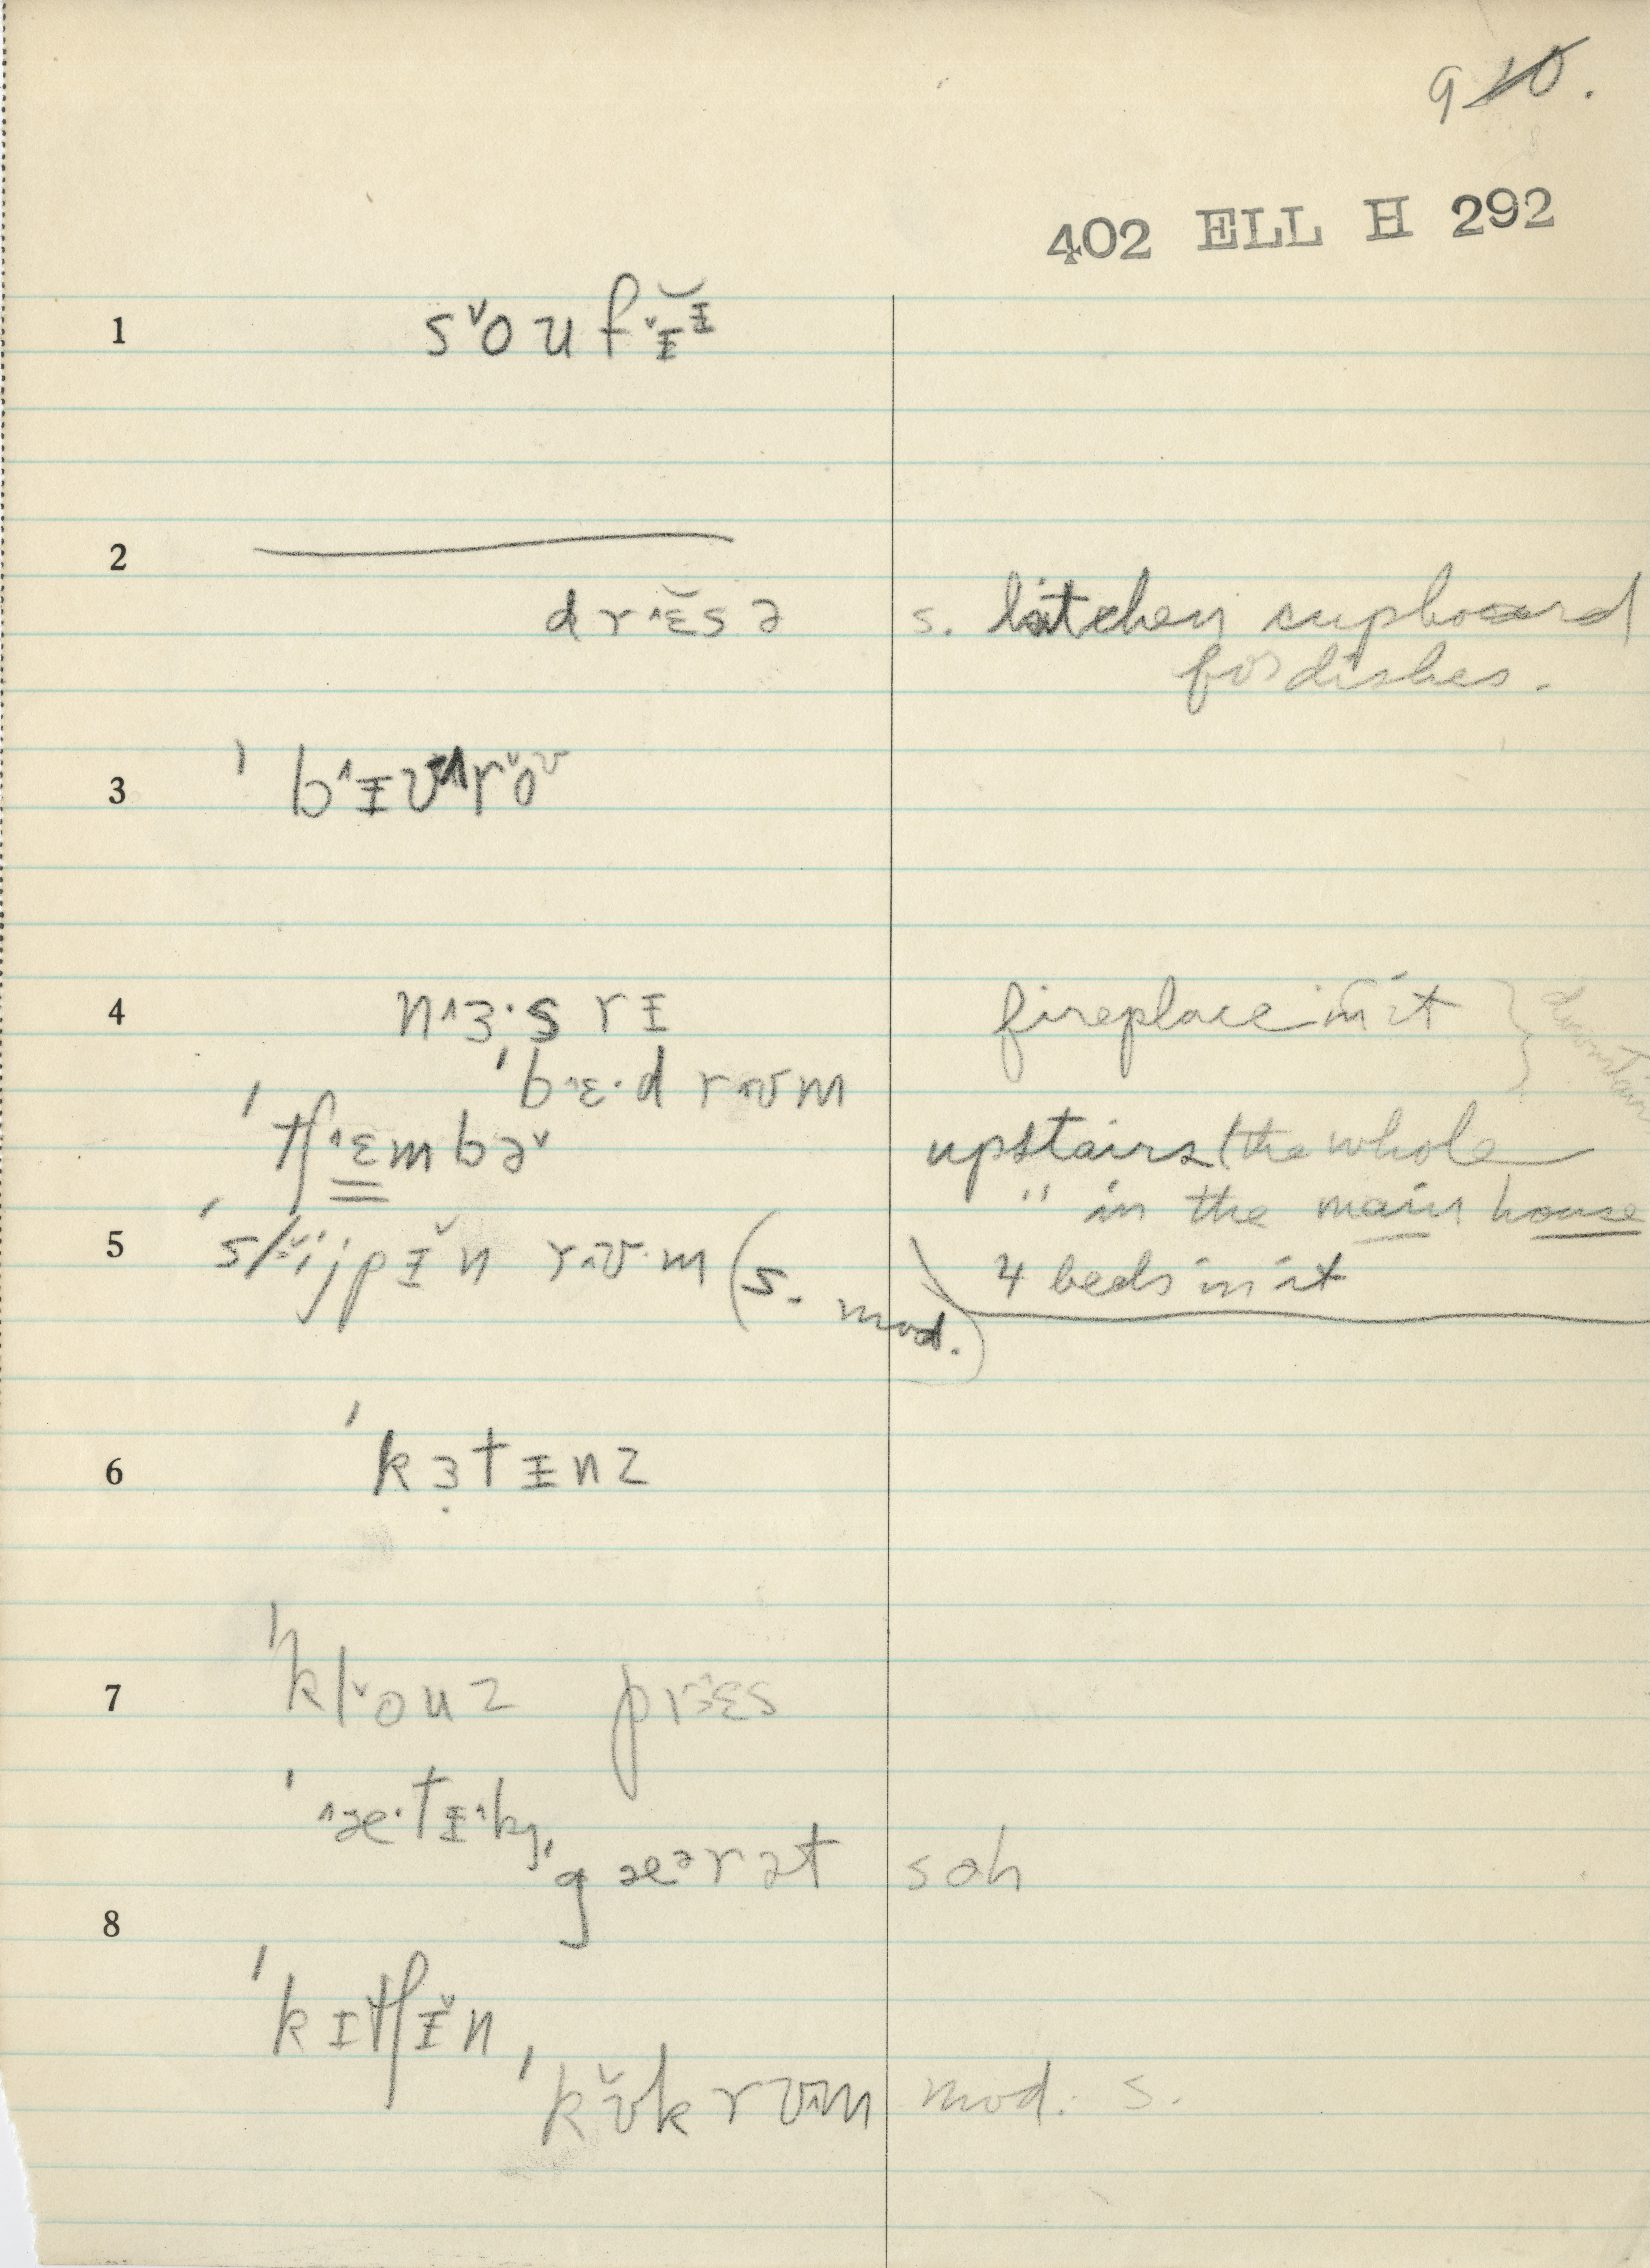 9 10.
402 ELL H 292
1 sˇouf ɪ̵̌ɪ̵
2
drˆɛ̆sə s. kitchen cupboard
for dishes.
3 ˈbˆɪ̵ʊʌrˇoʊ
4 nˆɜ·srɪ fireplace in it
ˈbˆɛ·drˆʊm
ˈtʃˆɛmbəˇ upstairs (the whole
" in the main house
5 ˈslijpɪ̵̌n rˆʊ·m (s. mod.) 4 beds in it
6 ˈkɜ̣tɪ̵nz
7 ˈklˇouz prɛs
ˈˆæ·tɪ̵ˆk, ˈgæᵊrət soh
8
ˈkɪtʃɪ̵̌n,
ˈkʊ̌krʊˆm mod. s.